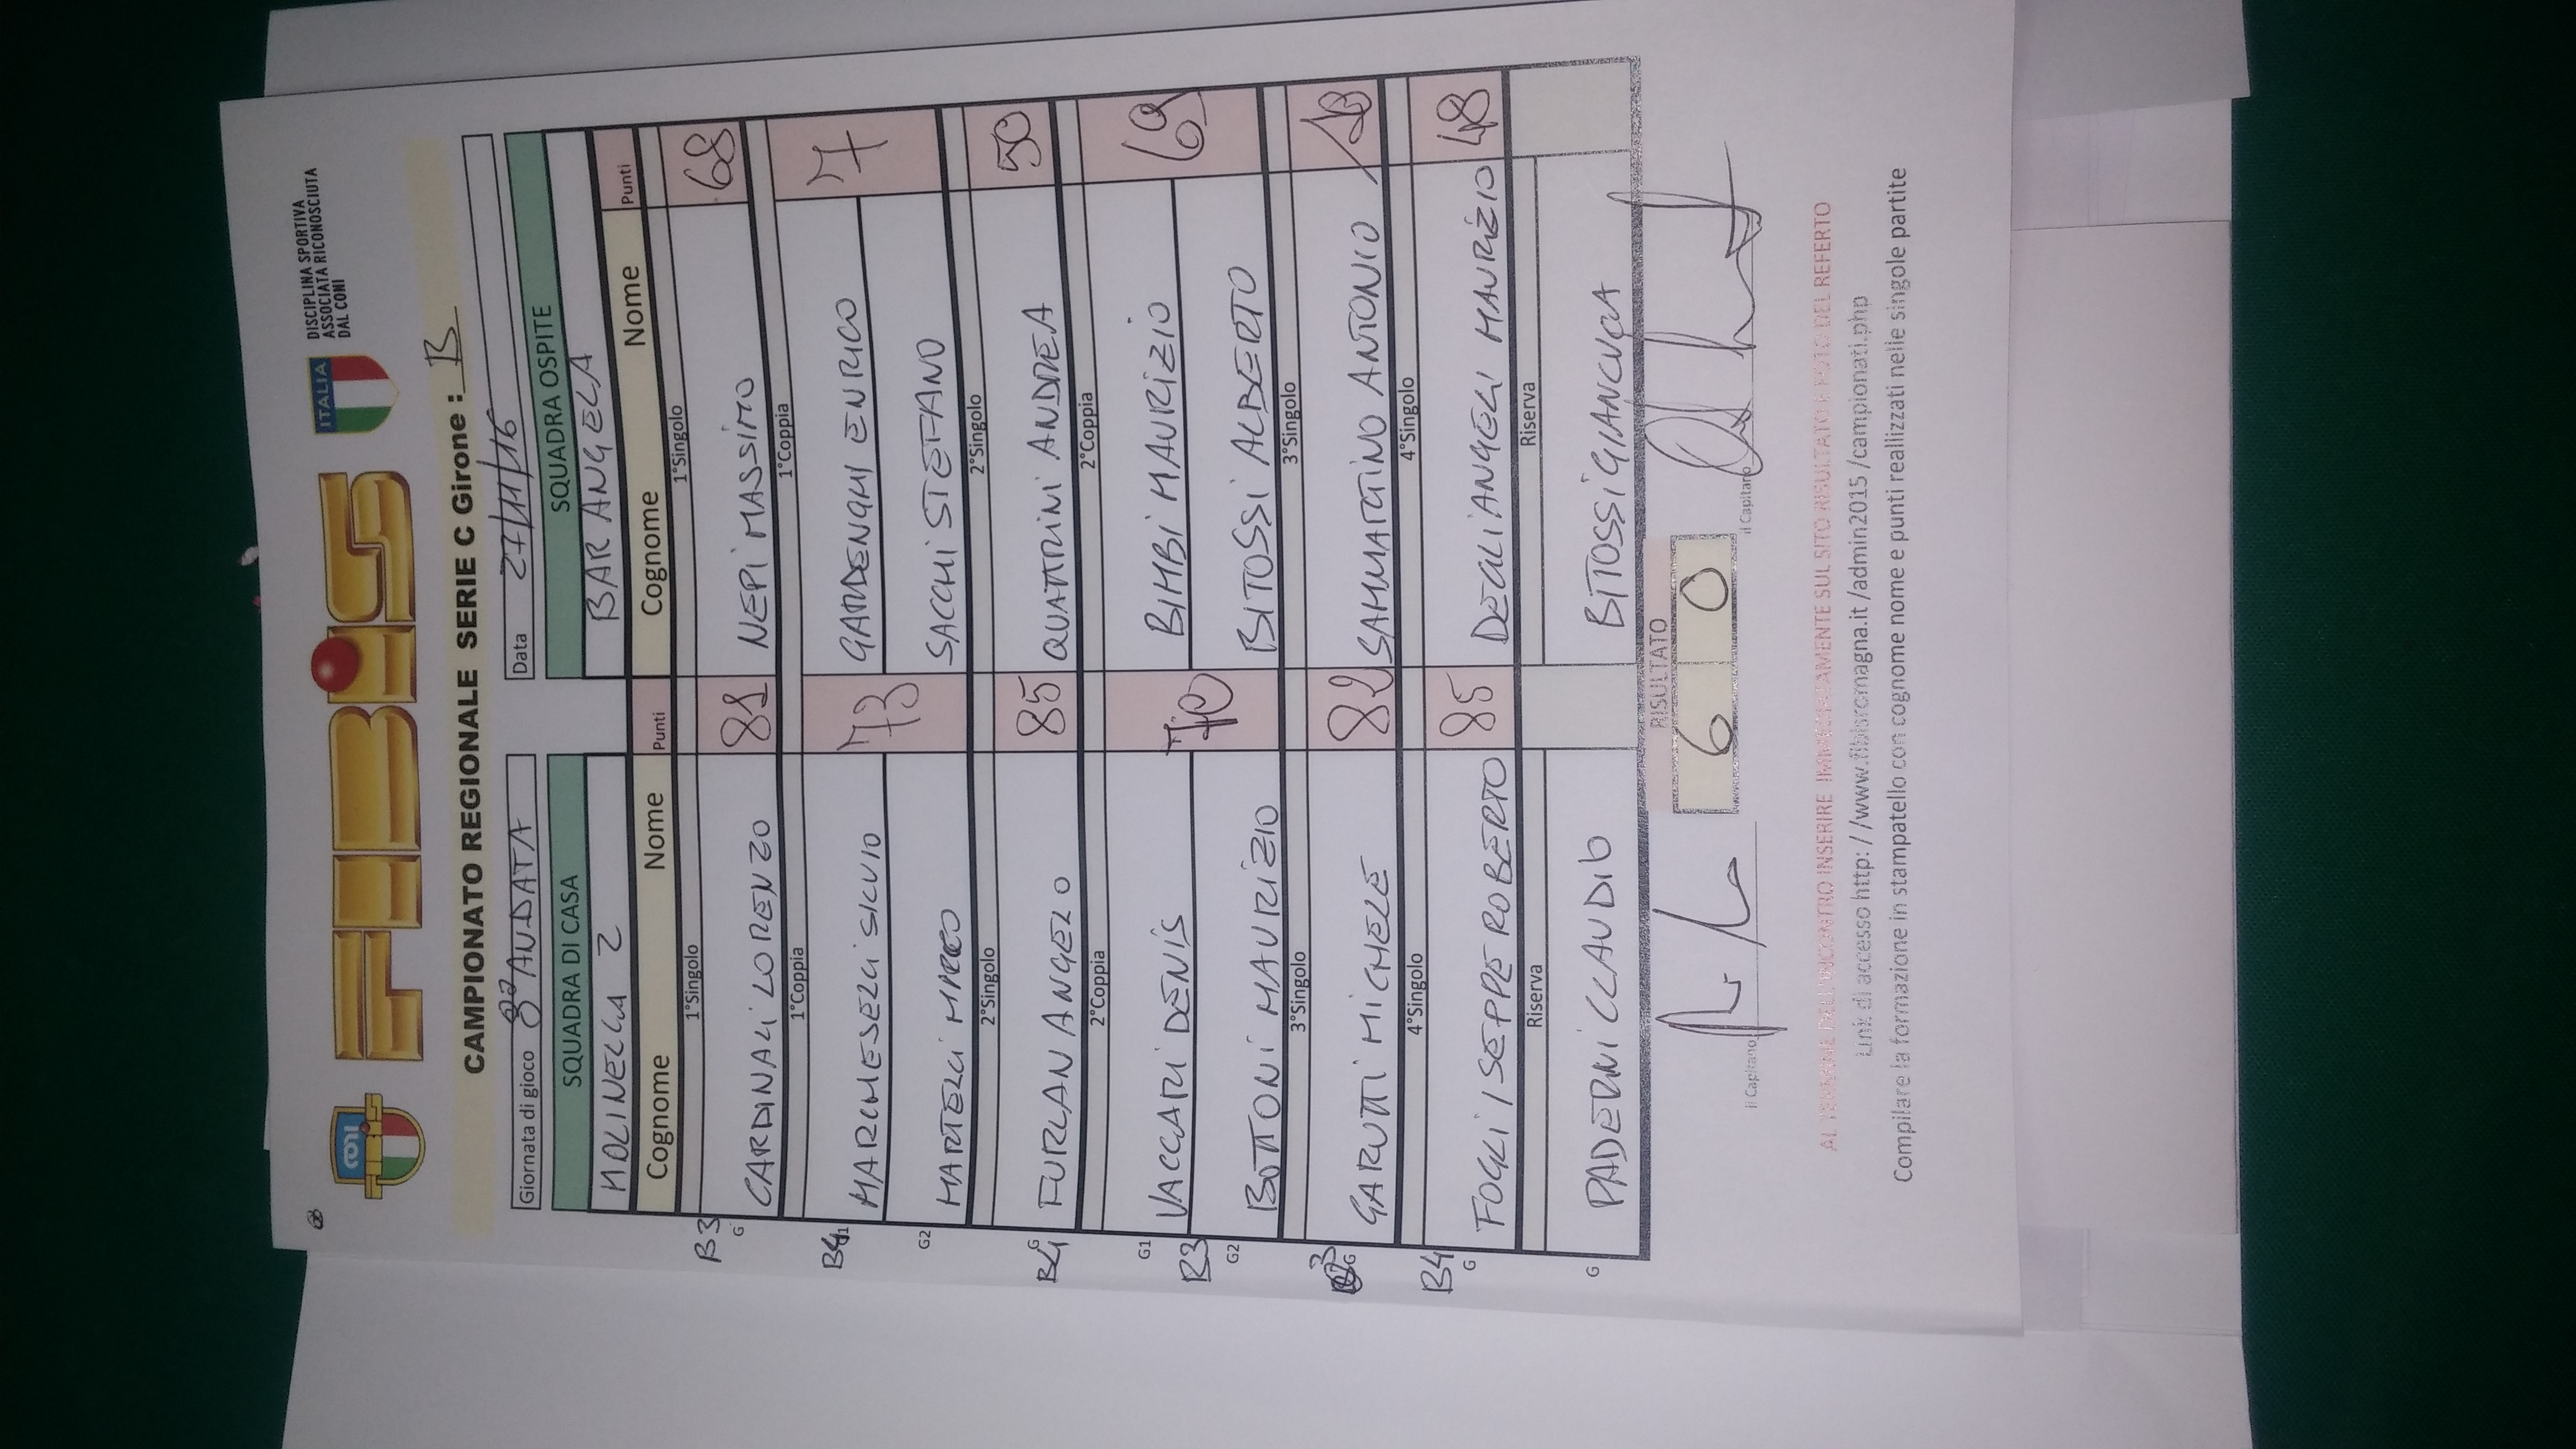 CONI
FIBiS
FIBiS
ITALIA
DISCIPLINA SPORTIVA
ASSOCIATA RICONOSCIUTA
DAL CONI
CAMPIONATO REGIONALE SERIE C Girone : B
Giornata di gioco 8ª ANDATA Data 27/11/16
SQUADRA DI CASA SQUADRA OSPITE
MOLINELLA 2 BAR ANGELA
Cognome Nome Punti Cognome Nome Punti
1°Singolo 1°Singolo
B3 G CARDINALI LORENZO 81 NEPI MASSIMO 68
1°Coppia 1°Coppia
B4 G1 MARCHESELLI SILVIO 73 GARDENGHI ENRICO 7
G2 MARTELLI MARCO SACCHI STEFANO
2°Singolo 2°Singolo
B4 G FURLAN ANGELO 85 QUATTRINI ANDREA 50
2°Coppia 2°Coppia
G1 VACCARI DENIS 70 BIMBI MAURIZIO 69
B3 G2 BOTTONI MAURIZIO BITOSSI ALBERTO
3°Singolo 3°Singolo
G GARUTTI MICHELE 82 SAMMARTINO ANTONIO
4°Singolo 4°Singolo
B4 G FOGLI ISEPPE ROBERTO 85 DEGLIANGELI MAURIZIO 48
Riserva Riserva
G PADERNI CLAUDIO BITOSSI GIANLUCA
RISULTATO
6 0
il Capitano il Capitano
AL TERMINE DELL'INCONTRO INSERIRE IMMEDIATAMENTE SUL SITO RISULTATO E FOTO DEL REFERTO
Link di accesso http://www.fibisromagna.it/admin2015/campionati.php
Compilare la formazione in stampatello con cognome nome e punti reallizzati nelle singole partite